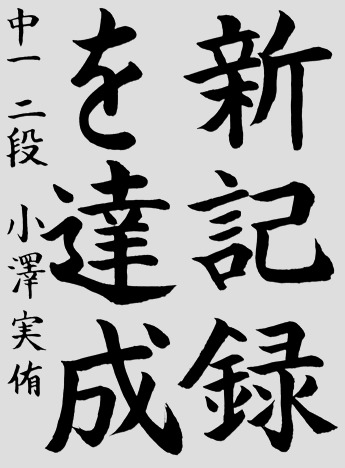 新記録
を達成
中一 二段 小澤実侑